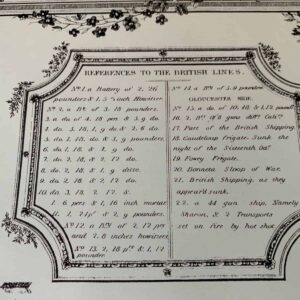 REFERENCES TO THE BRITISH LINES.
No. 1. a Battery of 2, 26
pounders & 1, 5 ½ inch Howitzer
No. 2. a Bt. of 3. 18 pounders.
3. a do of 4. 18 pr & 3. 9 do
4. do. 3. 12, 1, 9 do & 2. 6 do.
5. do. 2, 18, do & 3, 9 pounders.
6. do. 1. 12 & 2. do.
7. do. 2, 18 & 2, 12 do.
8. do. 2, 18 & 2, 12 ditto
9. do. 2. 18 & 2. 12 do.
10. do. 3, 18, 2, 12 &
1. 6 prs & 1, 16 inch mortar
11. 1, 24 pr & 2, 9 pounders.
No. 12. a Bt. of 2, 12 prs
and 2, 8 inches howitzers
No. 13. 2, 18 prs & 1, 12
pounder.
No. 14. a Bt. of 5. 9 pounders
GLOUCESTER SIDE.
No. 15. a do. of 10, 18 & 1, 12 pound
16. 2. Bts. of 8 guns differt. Calis.
17. Part of the British Shipping
18. Gaudeloup Frigate. Sunk the
night of the Sixteenth Oct.
19. Fowey Frigate.
20. Bonneta Sloop of War.
21. British Shipping, as they
appeard sunk.
22. a 44 gun ship, Namely
Sharon, & 2 Transports
set on fire by hot shot.